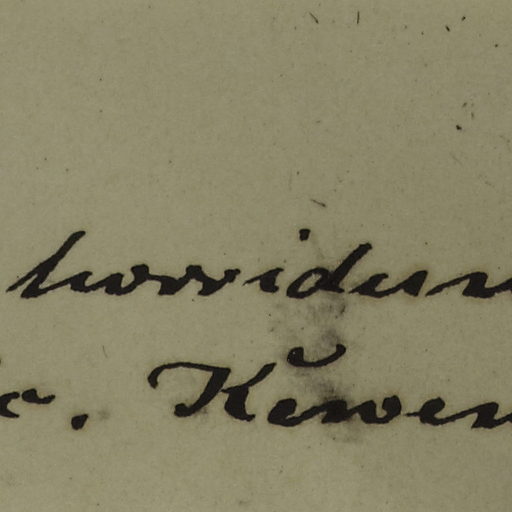 horridum
c. Kewen